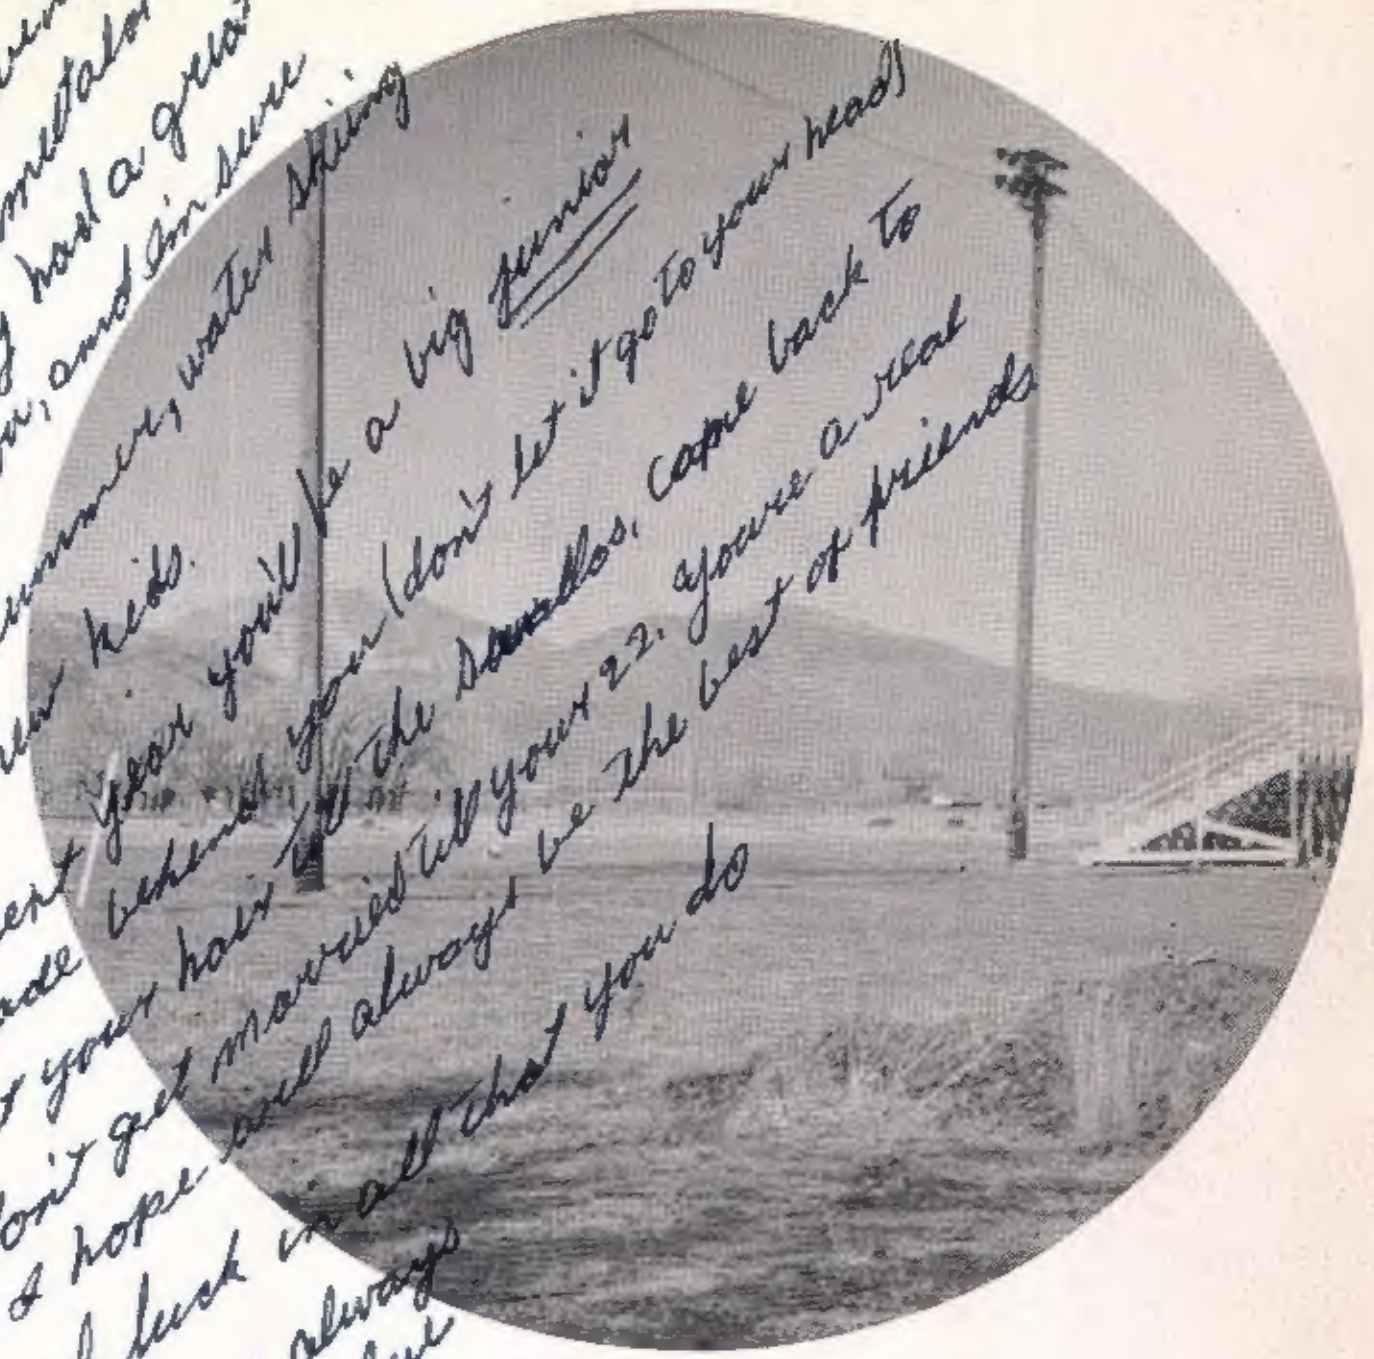 had a great
, and I'm sure
, water skiing
kids.
year you'll be a big junior
behind you (don't let it go to your head)
your hair till the swallos, come back to
don't get married till your 22. You're a real
I hope will always be the best of friends
luck in all that you do
always